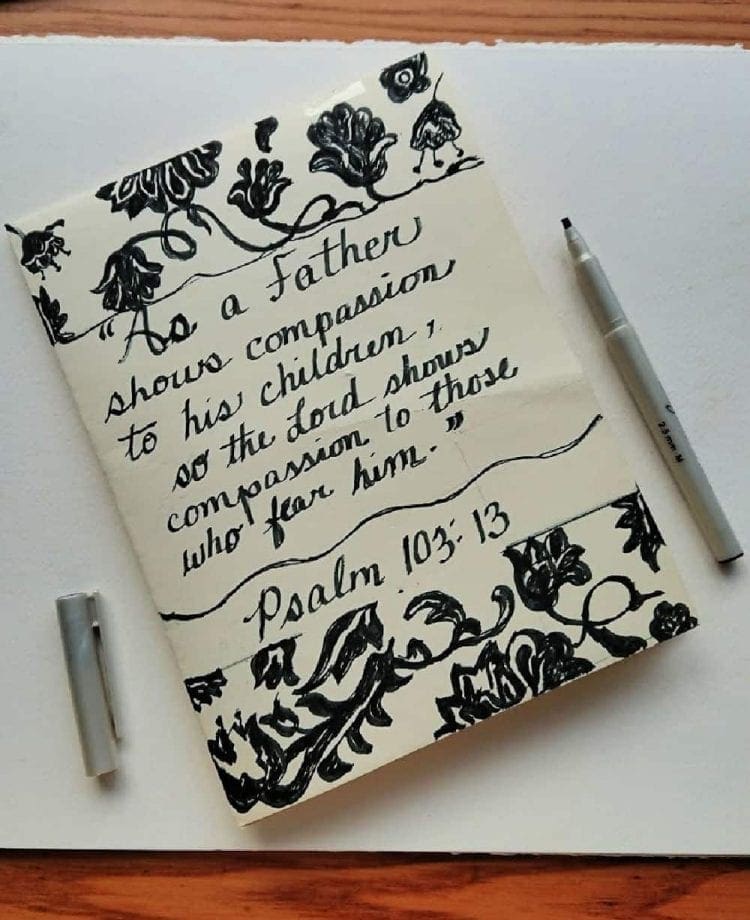 “As a Father
shows compassion
to his children,
so the Lord shows
compassion to those
who fear him.”
Psalm 103:13
2.5mm M